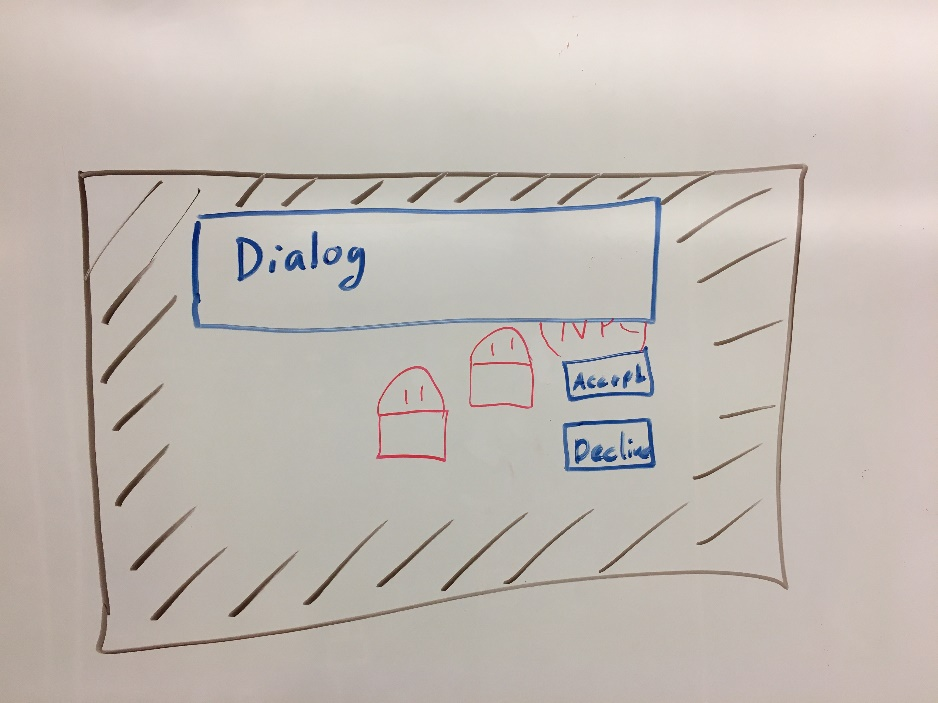 Dialog
NPC
Accept
Decline